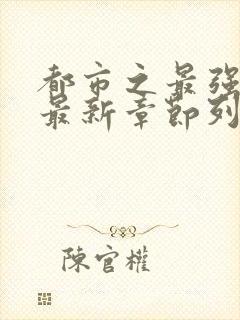 都市之最强
最新章节列
陈官权